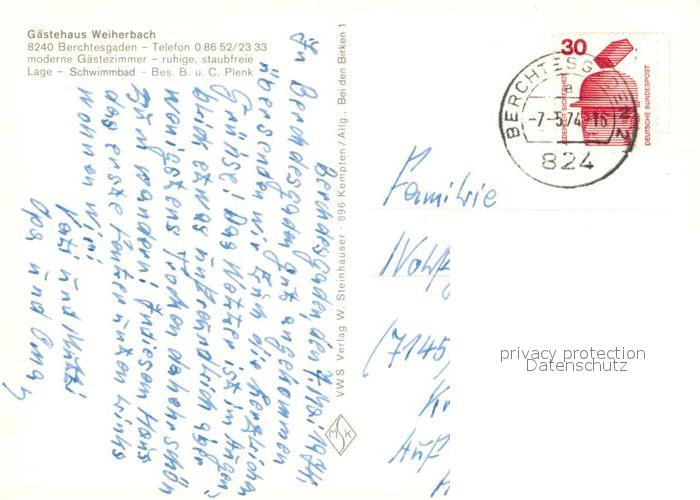 Gästehaus Weiherbach
8240 Berchtesgaden – Telefon 0 86 52/23 33
moderne Gästezimmer – ruhige, staubfreie
Lage – Schwimmbad – Bes. B. u. C. Plenk
Berchtesgaden, den 7. Mai 1974.
In Berchtesgaden gut angekommen
übersenden wir Euch die herzlichen
Grüße! Das Wetter ist im Augen-
blick etwas unfreundlich aber
wenigstens Trocken daher schön
zum wandern! In diesem Haus
das erste Fenster unten links
wohnen wir!
Vati und Mutti
Opa und Oma
VWS Verlag W. Steinhäuser · 896 Kempten/Allg., Bei den Birken 1
MSK
30
JEDERZEIT SICHERHEIT
DEUTSCHE BUNDESPOST
BERCHTESGADEN 2
a
-7.-5.74-16
824
Familie
(7145)
privacy protection
Datenschutz